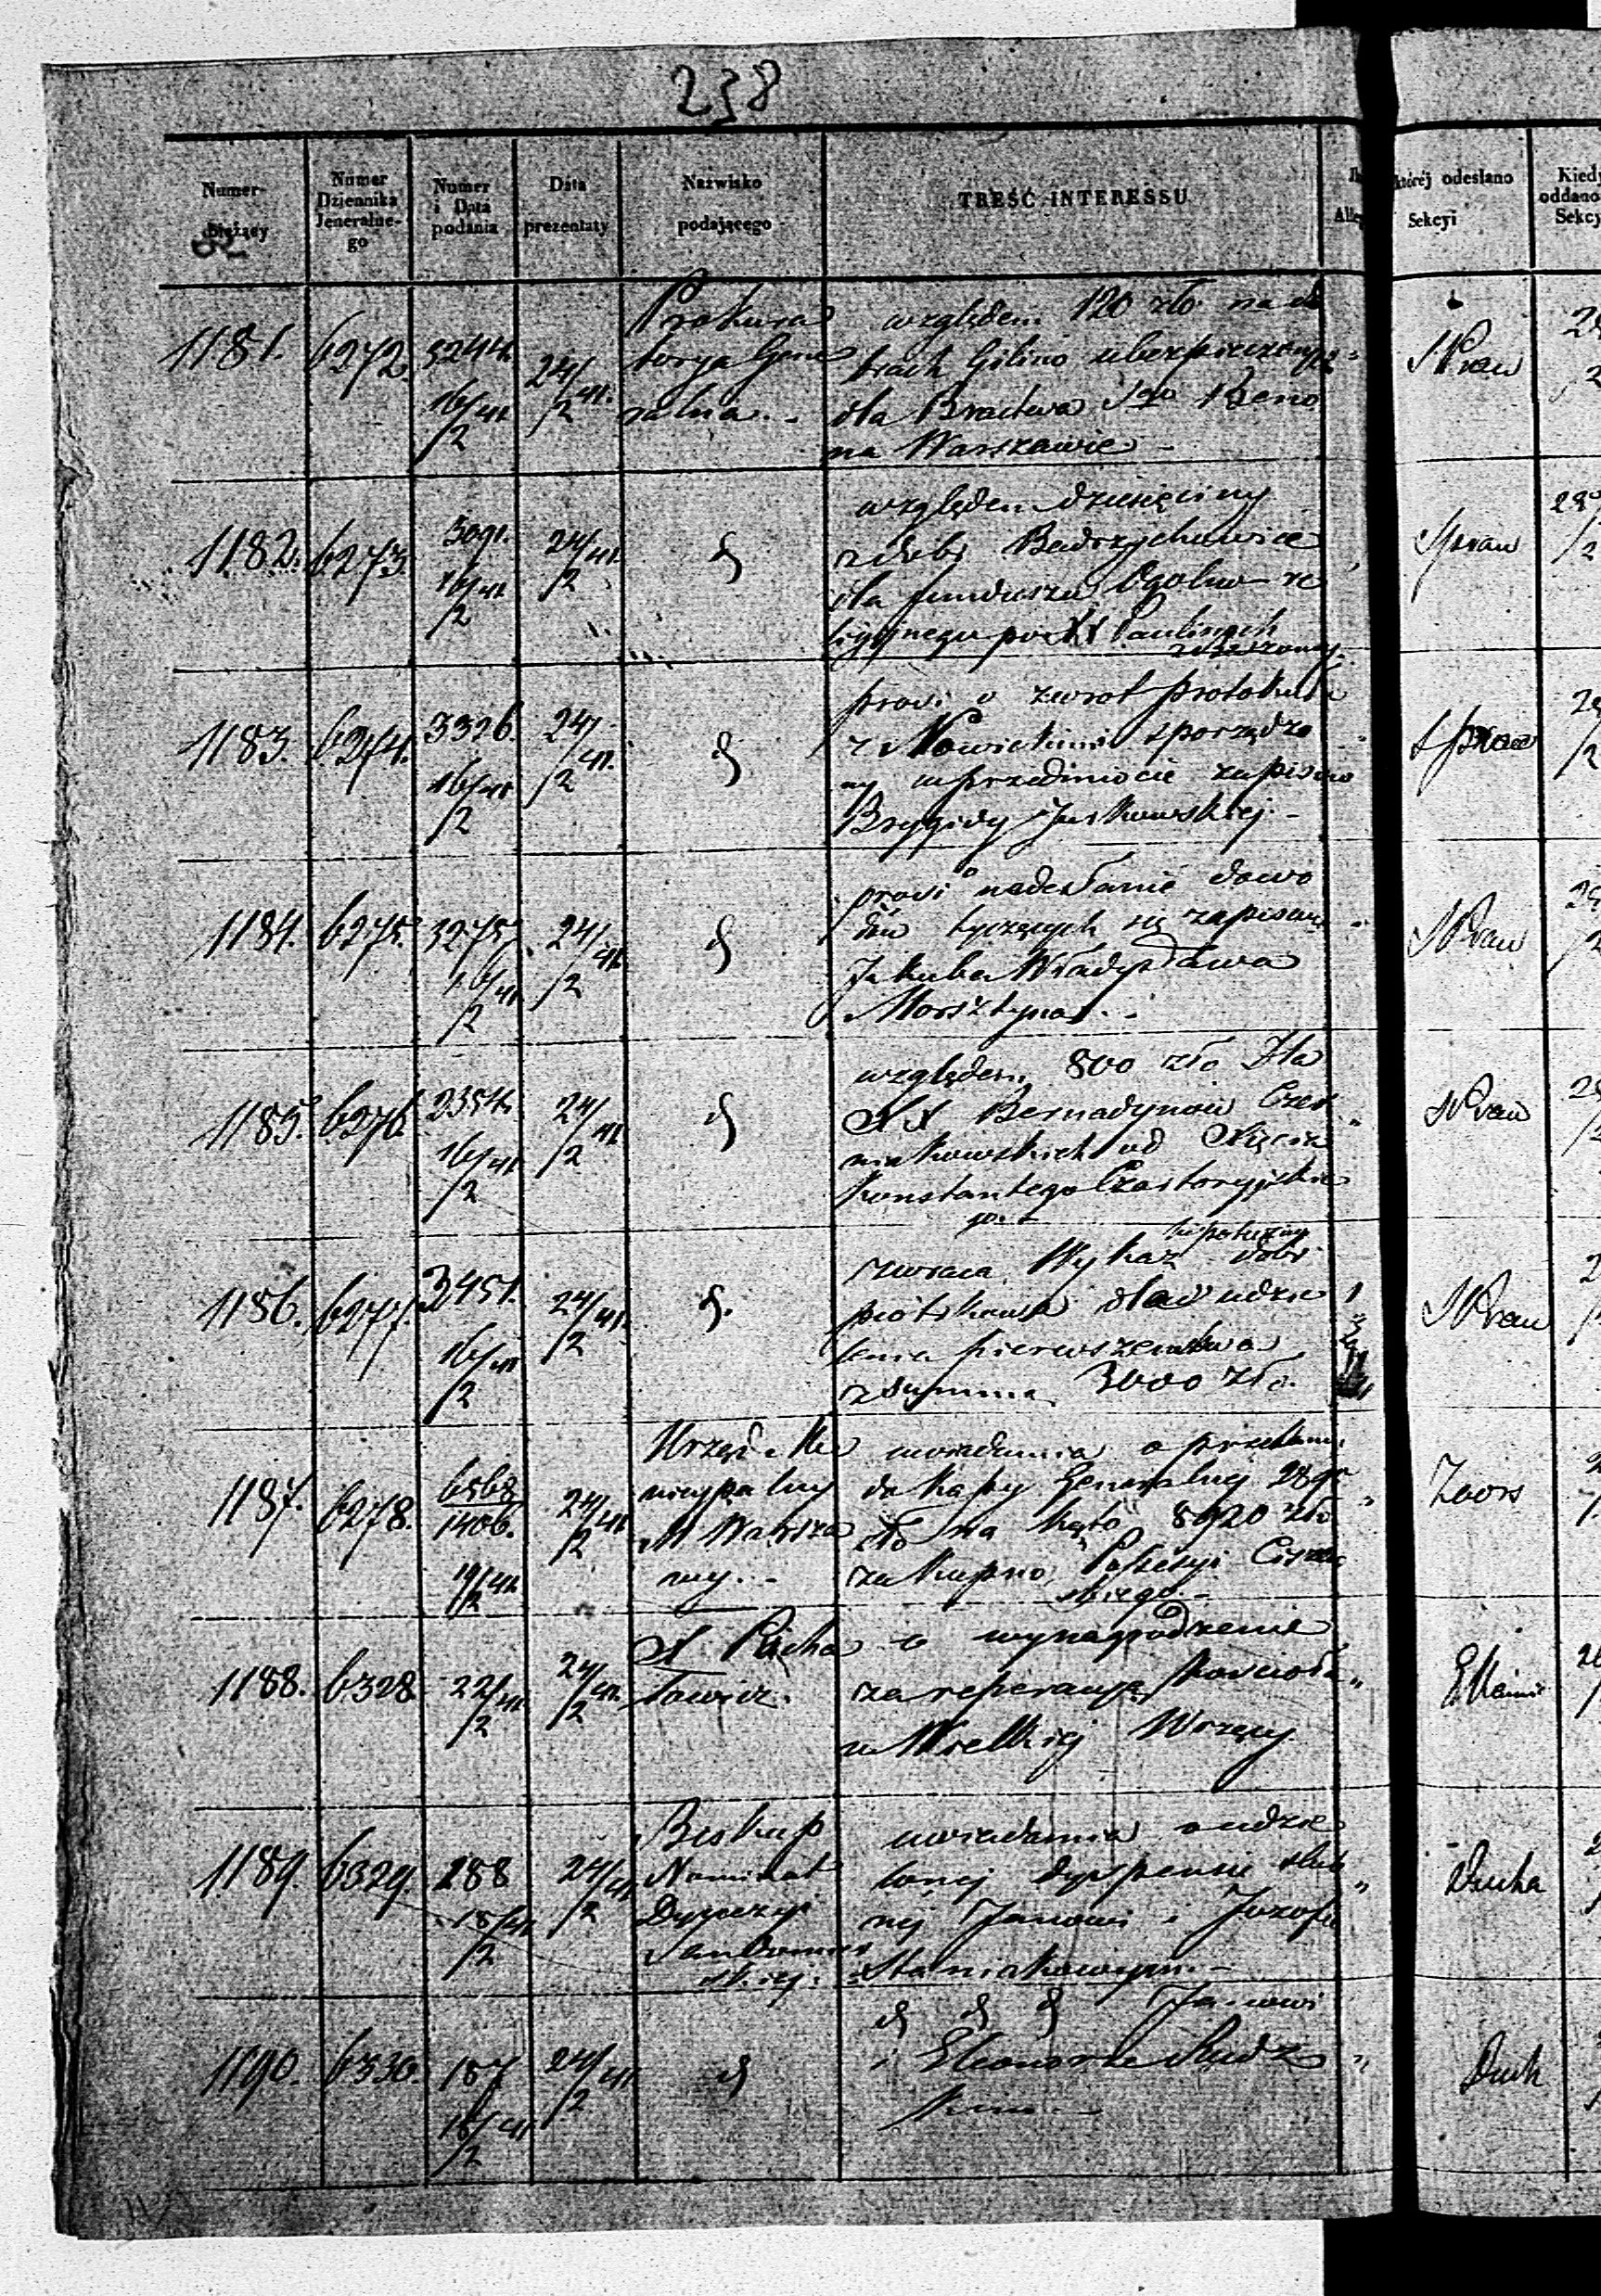 238
Numer bieżący
Numer Dziennika Jeneralnego
Numer i Data podania
Data prezentaty
Nazwisko podającego
TREŚĆ INTERESSU
której odesłano Sekcyi
Kiedy oddano Sekcy
1181. 6272. 5244. 16/2 41 24/2 41. Prokura
torya Gene
ralna. -
względem 120 zło. na do
brach Gilino ubezpieczonych
dla Bractwa Sgo Beno
na Warszawie -
SPraw
1182. 6273. 3091. 16/2 41 24/2 41. d
względem dziesięciny
z dóbr Bedrzychowice
dla funduszu Ogolno re
ligijnego po XX Paulinach
SPraw
1183. 6274. 3326. 16/2 41 24/2 41. d
prosi o zwrot protokułu
z Nowickimi sporządzo
ny w przedmiocie zapisu
Brygidy Jurkowskiej -
SPraw
1184. 6275. 3275. 16/2 41 24/2 41. d
prosi o nadesłanie dowo
dów tyczących się zapisu
Jakuba Władysława
Morsztyna. -
SPraw
1185. 6276. 2354. 16/2 41 24/2 41. d
względem 800 zło dla
XX Bernadynów Czer
niakowskich od Xięcia
Konstantego Czartoryjskie
go. -
SPraw
1186. 6277. 3451. 16/2 41 24/2 41. d.
zwraca Wykaz hipoteczny dóbr
piotrkowa dla udzie
lenia pierwszeństwa
z summą 3000 zło.
1
SPraw
1187. 6278. 6568/1406. 19/2 41 24/2 41. Urząd Mu
nicypalny
M Warsza
wy. -
uwiadamia o przesłaniu
do Kassy Generalnej
zło na 8920 zło
za kupno Possesyi
skiego -
1188. 6328. 22/2 41 24/2 41. X. Micha
łowicz.
o wynagrodzenie
za reperacyą Kościoła
w Wielkiej Wrzący
1189. 6329. 188 18/2 41 24/2 41 Biskup
Nominat
Dyecezyi
Sandomier
skiej.
uwiadamia o udzie
lonej dyspensie ślub
nej Janowi i Jozefie
Staniakowym. -
Ducha
1190. 6330. 187 18/2 41 24/2 41. d
d d d Janowi
i Eleonorze Rudz
kim. -
Duch